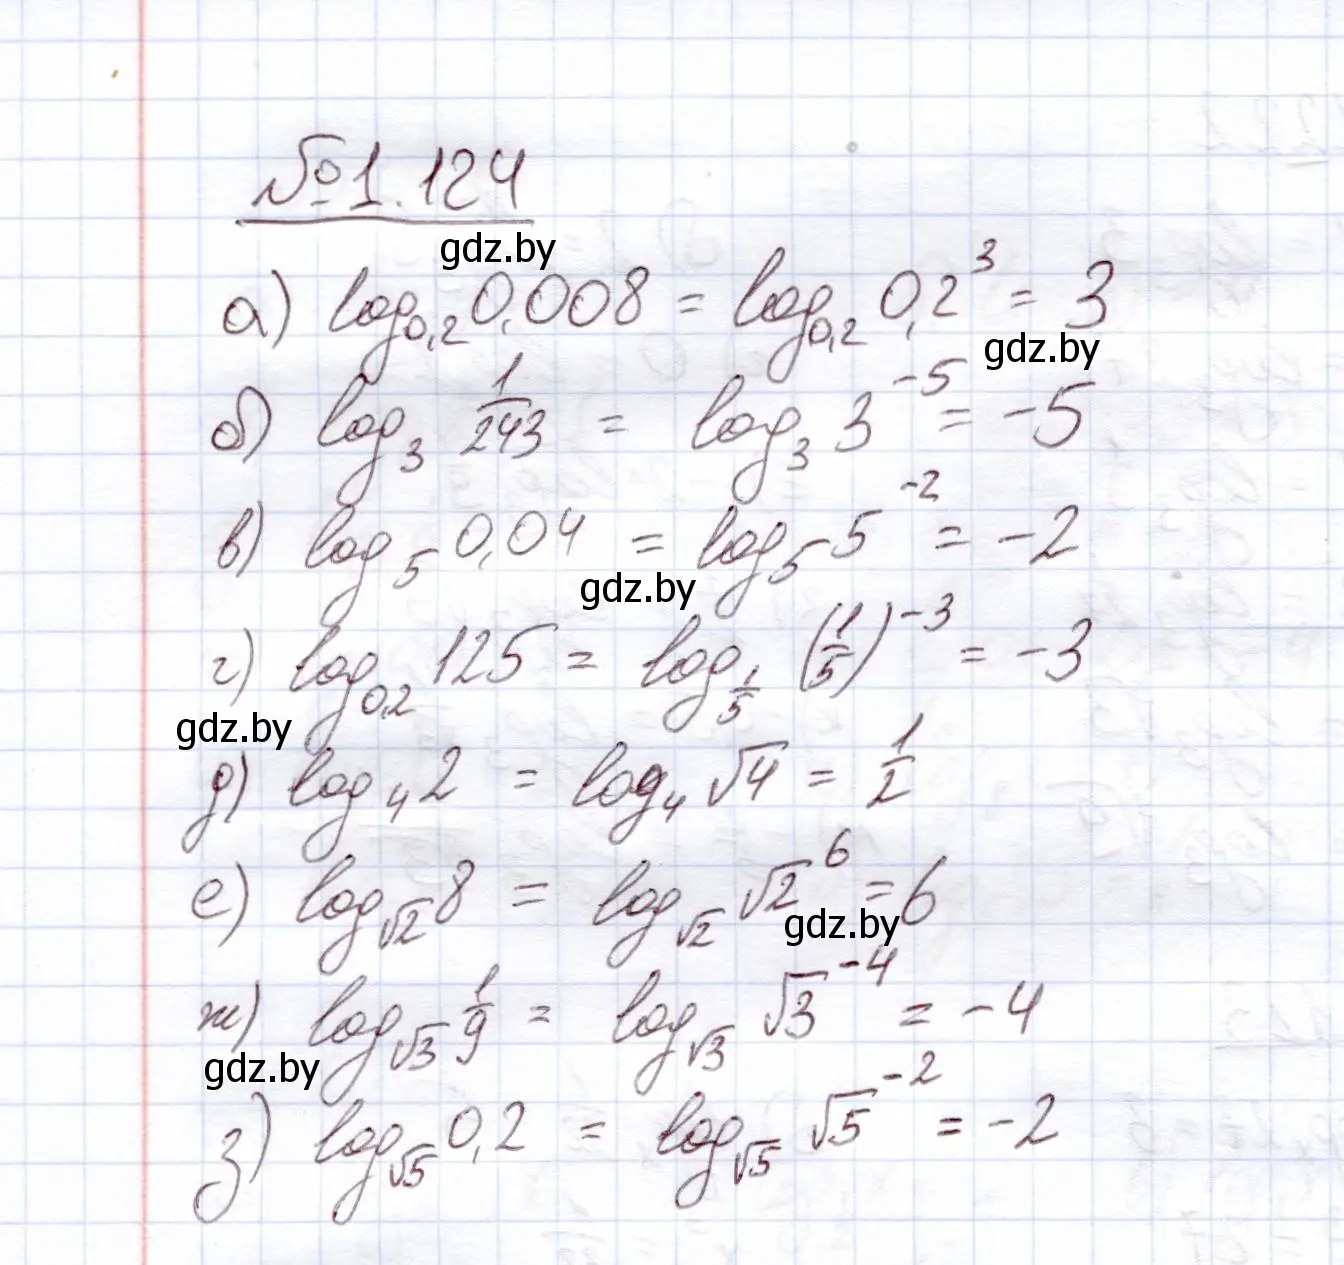 №1.124
gdz.by
а) log₀,₂ 0,008 = log₀,₂ 0,2³ = 3
gdz.by
б) log₃ 1/243 = log₃ 3⁻⁵ = -5
в) log₅ 0,04 = log₅ 5⁻² = -2
gdz.by
г) log₀,₂ 125 = log_{1/5} (1/5)⁻³ = -3
gdz.by
д) log₄ 2 = log₄ √4 = 1/2
е) log_{√2} 8 = log_{√2} √2⁶ = 6
gdz.by
ж) log_{√3} 1/9 = log_{√3} √3⁻⁴ = -4
gdz.by
з) log_{√5} 0,2 = log_{√5} √5⁻² = -2